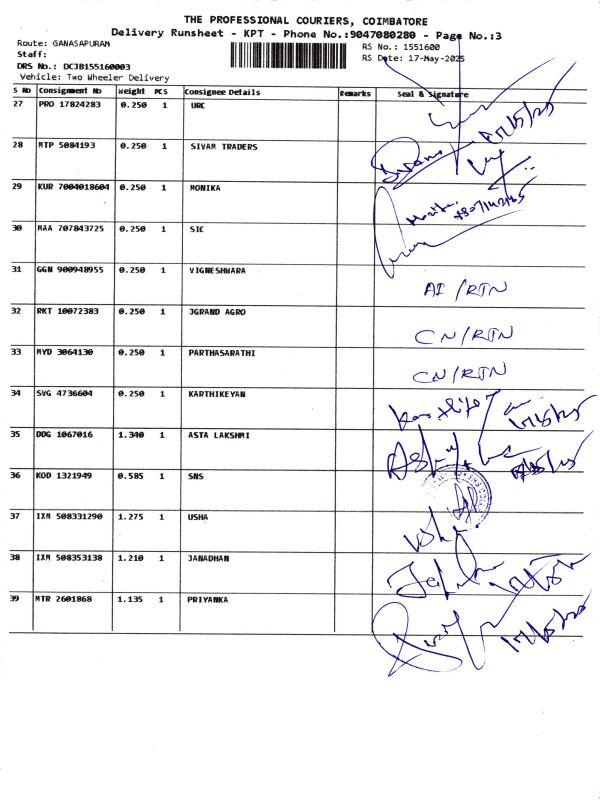 THE PROFESSIONAL COURIERS, COIMBATORE
Delivery Runsheet - KPT - Phone No.:9047080280 - Page No.:3
Route: GANASAPURAM
RS No.: 1551600
Staff:
RS Date: 17-May-2025
DRS No.: DCJB155160003
Vehicle: Two Wheeler Delivery
S No Consignment No Weight PCS Consignee Details Remarks Seal & Signature
27 PRO 17824283 0.250 1 URC
28 MTP 5084193 0.250 1 SIVAM TRADERS
29 KUR 7004018604 0.250 1 MONIKA
30 MAA 707843725 0.250 1 SIC
31 GGN 900948955 0.250 1 VIGNESHWARA AI/RTN
32 RKT 10072383 0.250 1 JGRAND AGRO CN/RTN
33 MYD 3064130 0.250 1 PARTHASARATHI CN/RTN
34 SVG 4736604 0.250 1 KARTHIKEYAN
35 DDG 1067016 1.340 1 ASTA LAKSHMI
36 KOD 1321949 0.585 1 SNS
37 IXM 508331290 1.275 1 USHA
38 IXM 508353138 1.210 1 JANADHAN
39 MTR 2601868 1.135 1 PRIYANKA